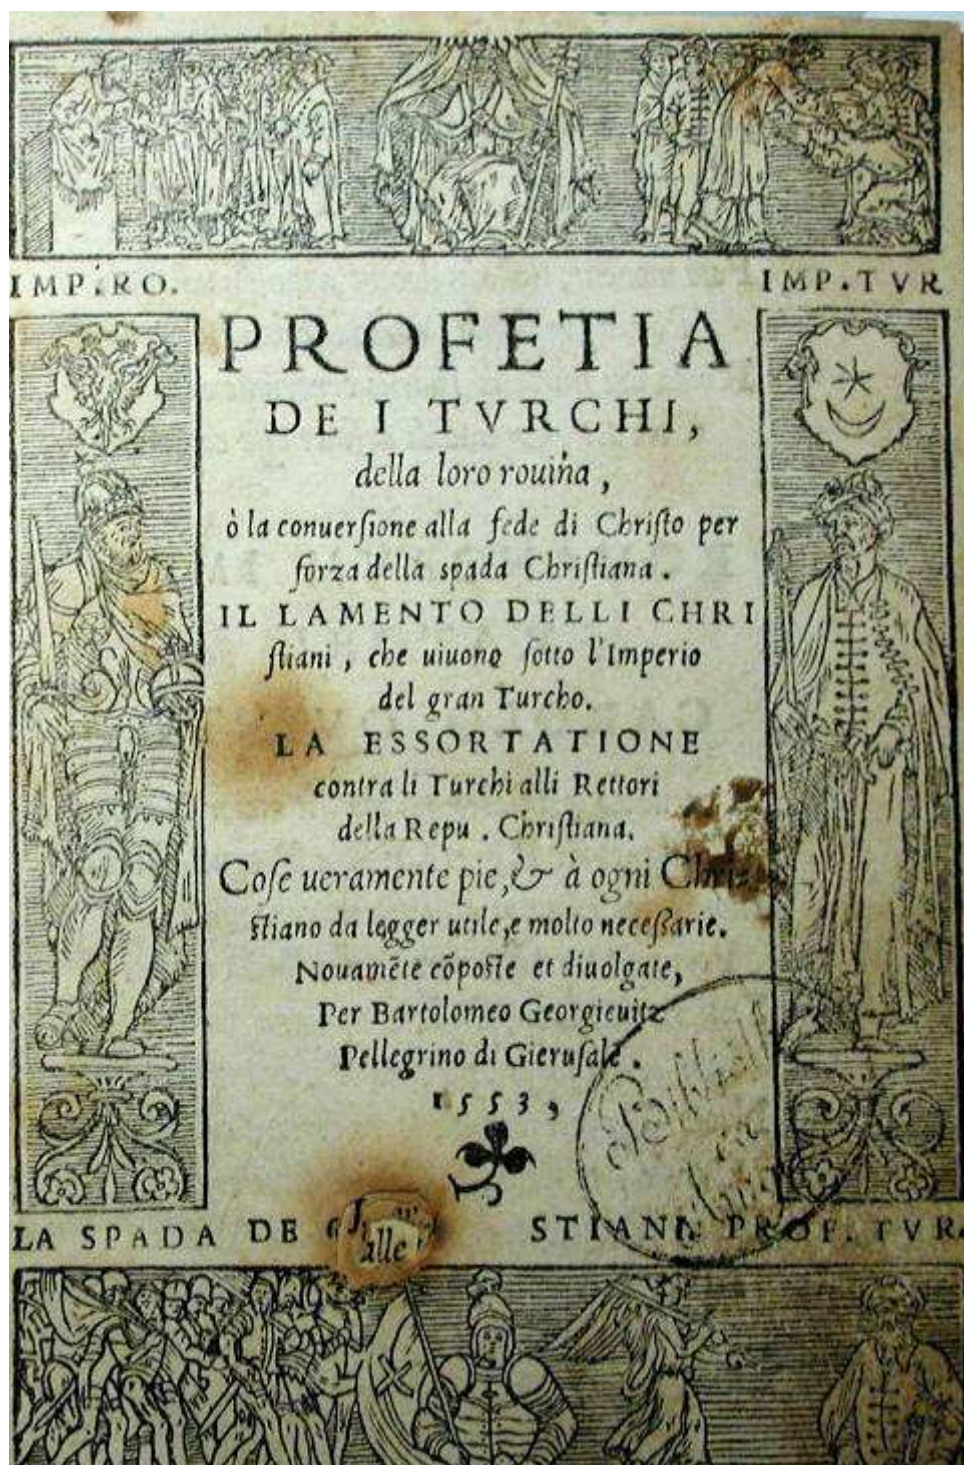 IMP. RO.
IMP. TVR
PROFETIA
DE I TVRCHI,
della loro rouina,
ò la conuerſione alla fede di Chriſto per
forza della spada Chriſtiana.
IL LAMENTO DELLI CHRI
ſtiani, che uiuono ſotto l'Imperio
del gran Turcho.
LA ESSORTATIONE
contra li Turchi alli Rettori
della Repu. Chriſtiana.
Coſe ueramente pie, & à ogni Chri-
ſtiano da legger utile, e molto neceſſarie.
Nouamẽte cõpoſte et diuolgate,
Per Bartolomeo Georgieuitz
Pellegrino di Gieruſalẽ.
1553,
LA SPADA DE STIANI. PROF. TVR.
alle